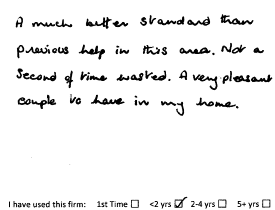 A much better standard than
previous help in this area. Not a
second of time wasted. A very pleasant
couple to have in my home.
I have used this firm: 1st Time ☐ <2 yrs ☑ 2-4 yrs ☐ 5+ yrs ☐